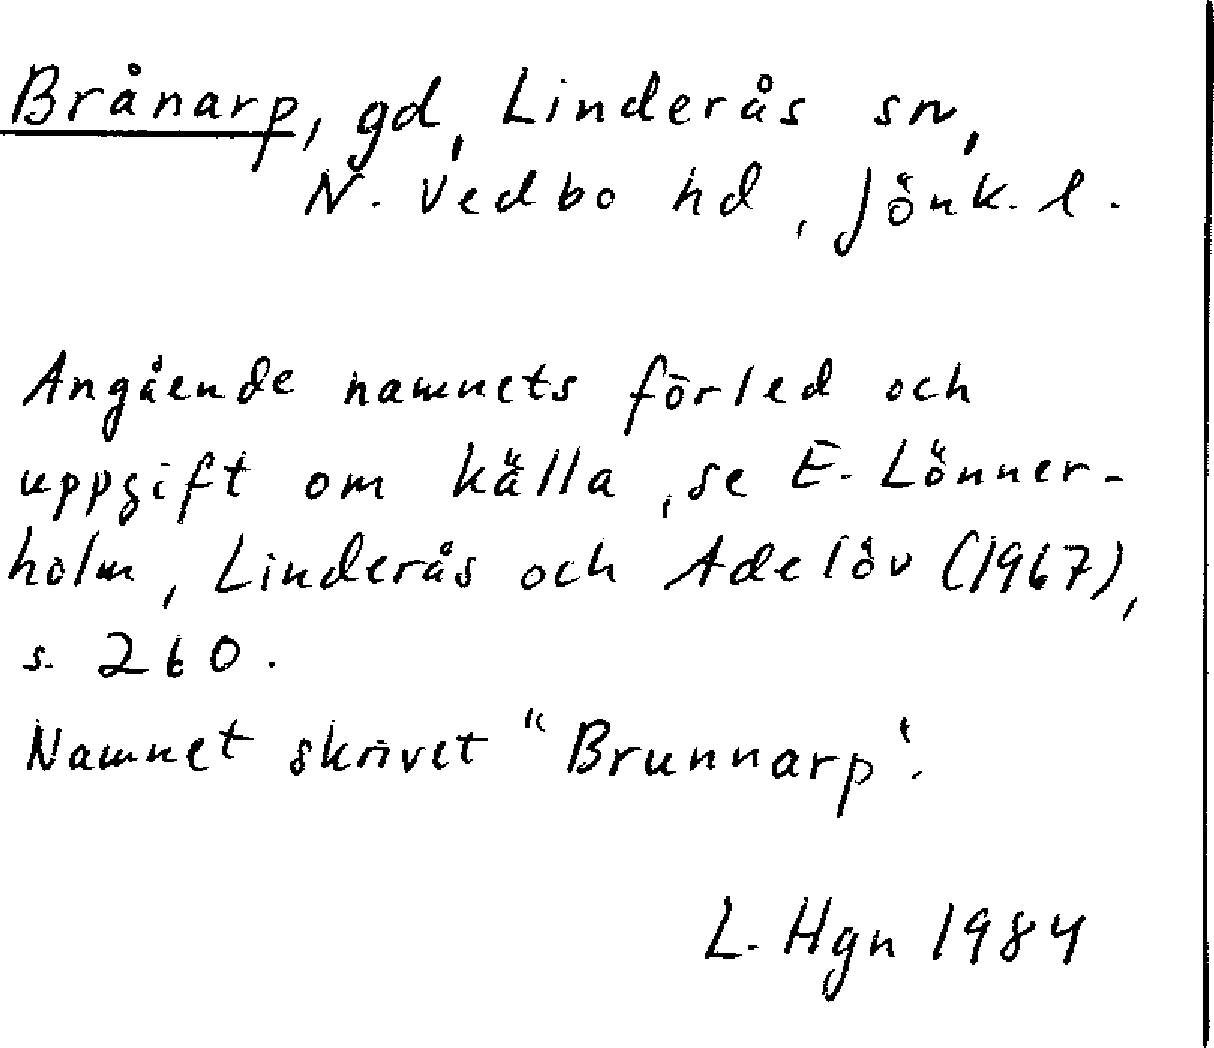 Brånarp, gd, Linderås sn,
N. Vedbo hd, Jönk. l.
Angående namnets förled och
uppgift om källa, se E. Lönner-
holm, Linderås och Adelöv (1967),
s. 260.
Namnet skrivet "Brunnarp".
L. Hgn 1984